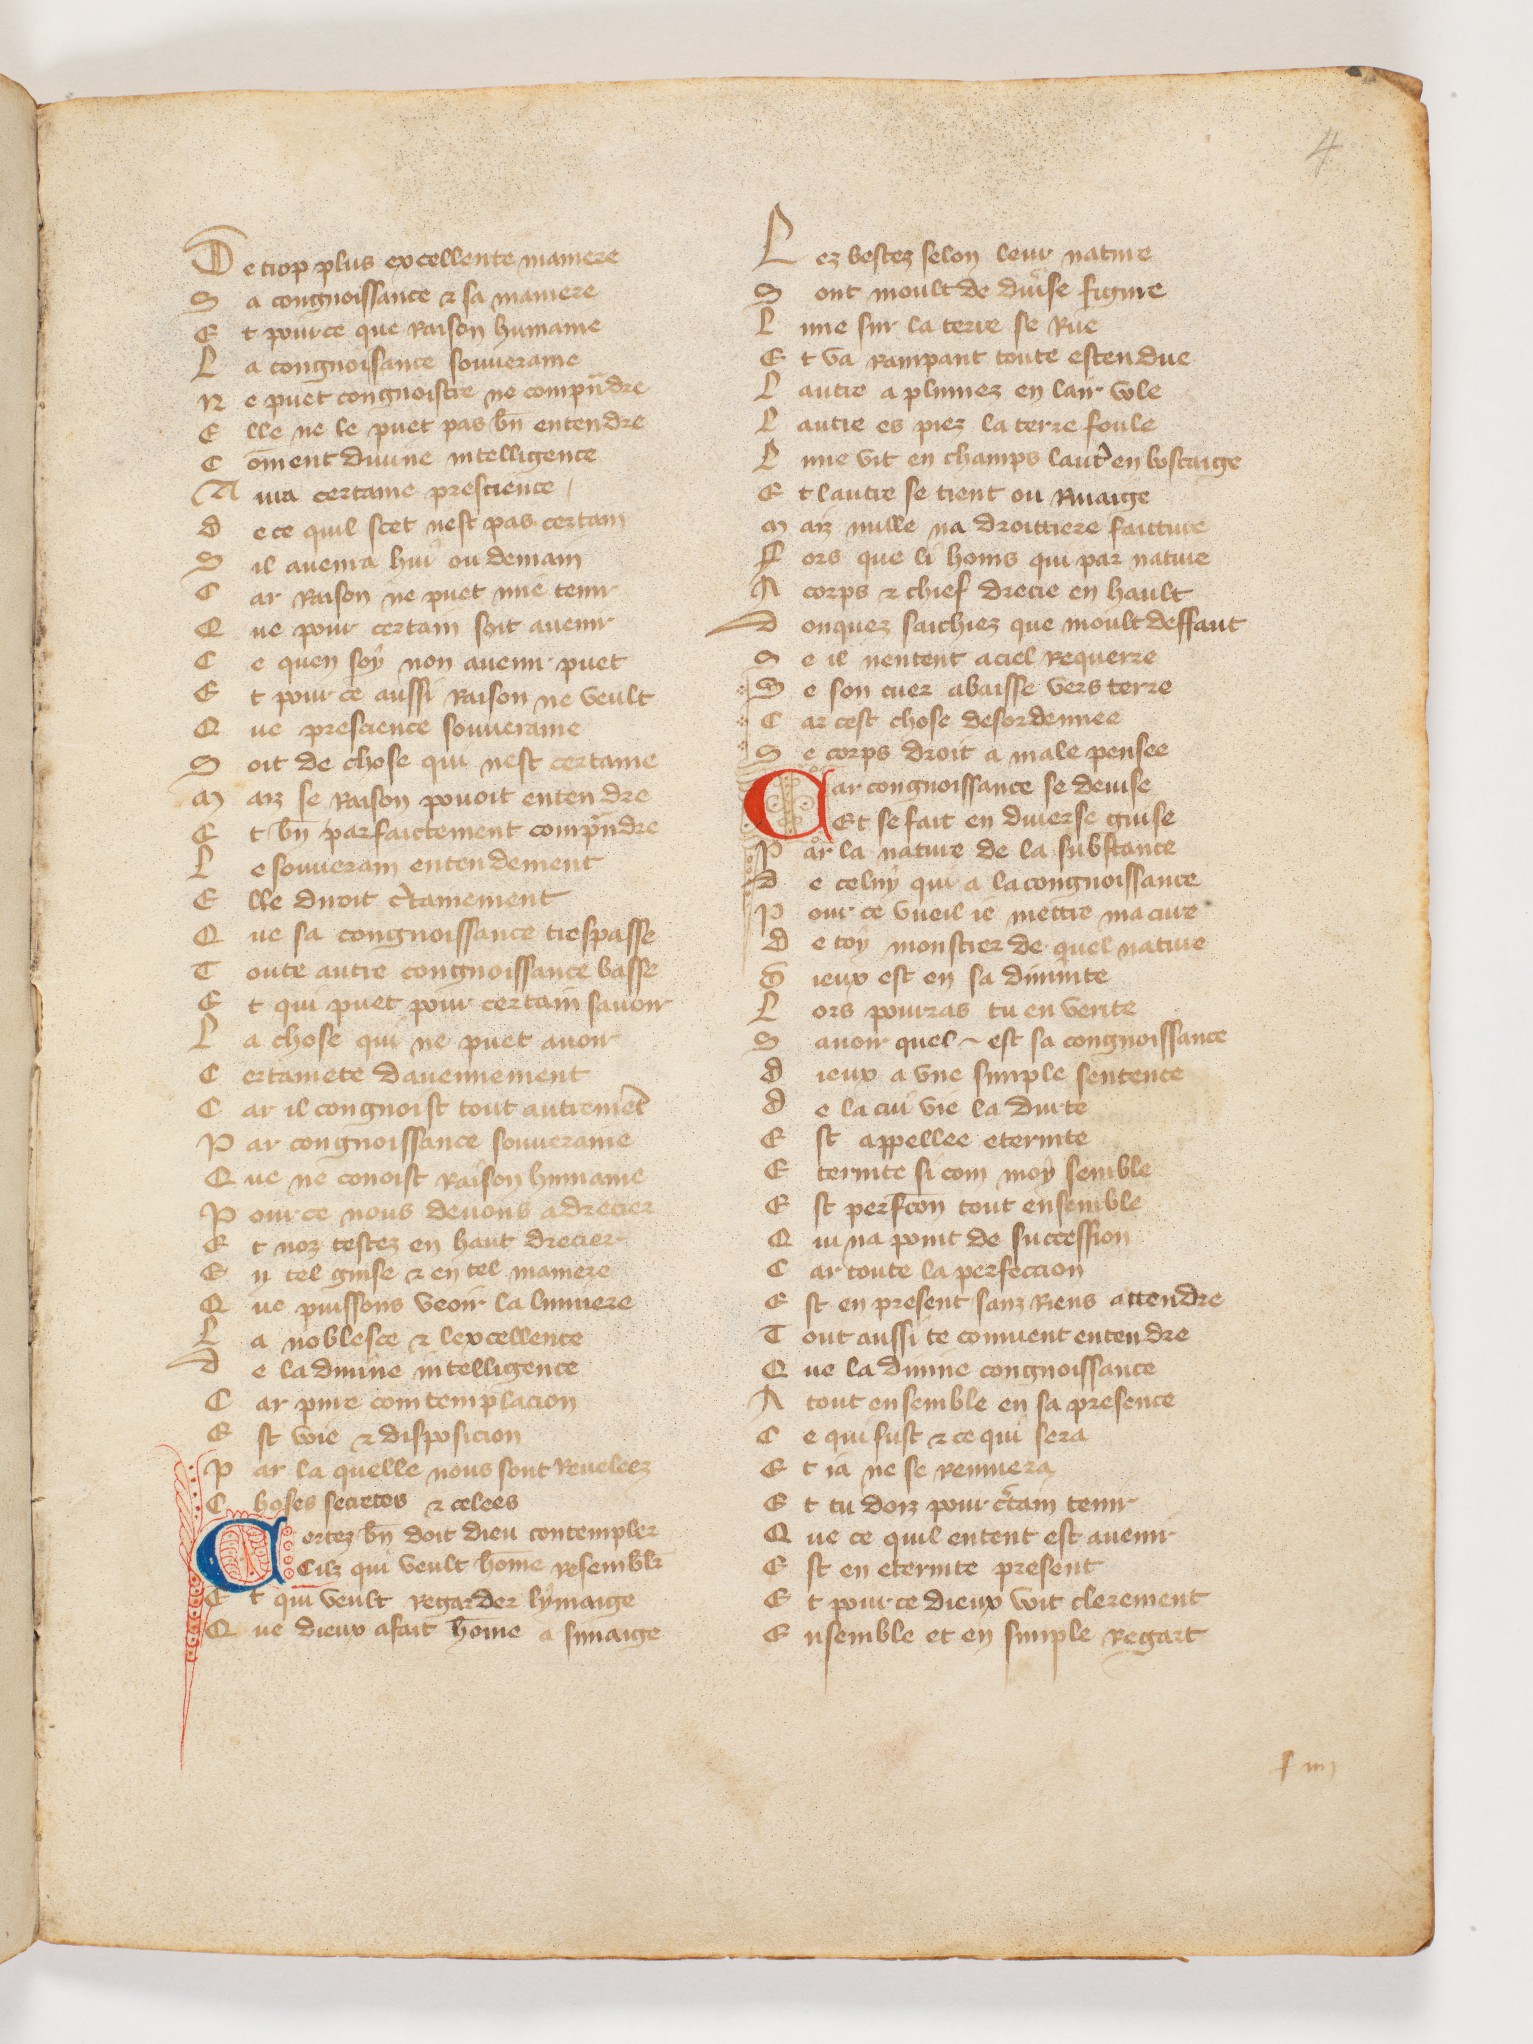 4
De trop plus excellente maniere
Sa congnoissance & sa maniere
Et pource que Raison humaine
La congnoisance souueraine
Ne puet congnoistre ne compñdre
Elle ne le puet pas bñ entendre
Cōment diuine intelligence
A uia certaine prescience
De ce quil scet nest pas certain
Sil auenra hui ou demain
Car Raison ne puet mie tenir
Que pour certain soit auenir
Ce quen soy non auenir puet
Et pour ce aussi Raison ne veult
Que prescience souueraine
Soit de chose qui nest certaine
Maiz se Raison pouoit entendre
Et bñ parfaictement compñdre
Le souuerain entendement
Elle diroit c'tainement
Que sa congnoissance trespasse
Toute autre congnoissance basse
Et qui puet pour certain sauoir
La chose qui ne puet auoir
Certainete dauennement
Car il congnoist tout autremēt
Par congnoissance souueraine
Que ne conoist Raison humaine
Pource nous deuons adrecier
Et noz testez en haut drecier
En tel guise & en tel maniere
Que puissons veoir la lumiere
La noblesce & lexcellence
De la diuine intelligence
Car pure contemplacion
Est voie & disposicion
Par la quelle nous sont Reueleez
Choses secretes & celees
Certez bñ doit dieu contempler
Cilz qui veult hōme Resembler
Et qui veult Regarder lymaige
Que dieux a fait hōme a simaige
Lez bestez selon leur nature
Sont moult de diu'se figure
Lune sur la terre se Rue
Et va Rampant toute estendue
Lautre a plumez en lair vole
Lautre es piez la terre foule
Lune vit en champs laut' en boscaige
Et lautre se tient ou Riuaige
Maiz nulle na droitturiere faitture
Fors que li homs qui par nature
A corps & chief drecie en hault
Donquez saichiez que moult deffaut
Se il nentent a ciel Requerre
Se son cuer abaisse vers terre
Car cest chose desordennee
Se corps droit a male pensee
Car congnoissance se deuise
Et se fait en diuerse guise
Par la nature de la substance
De celuy qui a la congnoissance
Pour ce vueil ie mettre ma cure
De toy monstrer de quel nature
Dieux est en sa diuinite
Lors pourras tu en verite
Sauoir quel est sa congnoissance
Dieux a vne simple sentence
De la cui vie la durte
Est appellee eternite
Eternite si com moy semble
Est perfcōn tout ensemble
Qui na point de succession
Car toute la perfeccion
Est en present sanz Riens attendre
Tout aussi te conuient entendre
Que la diuine congnoissance
A tout ensemble en sa presence
Ce qui fust & ce qui sera
Et ia ne se Remuera
Et tu doiz pour c'tain tenir
Que ce quil entent est auenir
Est en eternite present
Et pource dieux voit clerement
Ensemble et en simple Regart
f iiij